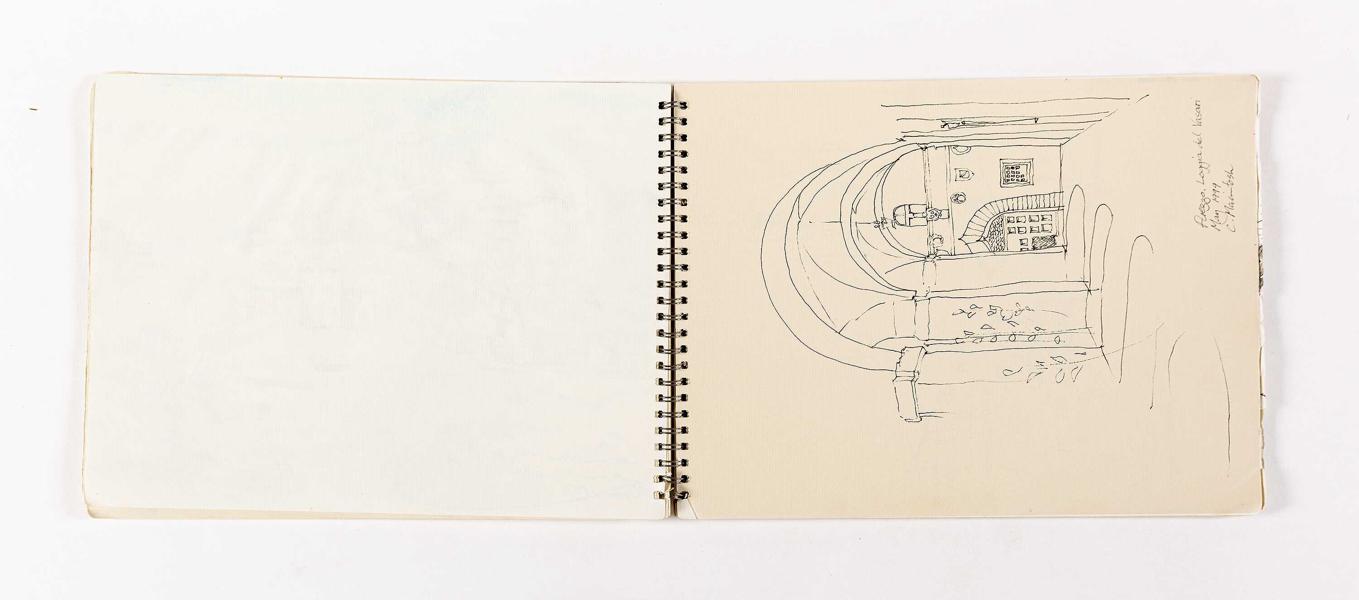 Arezzo. Loggia del Vasari
May 1999
C. Mackintosh